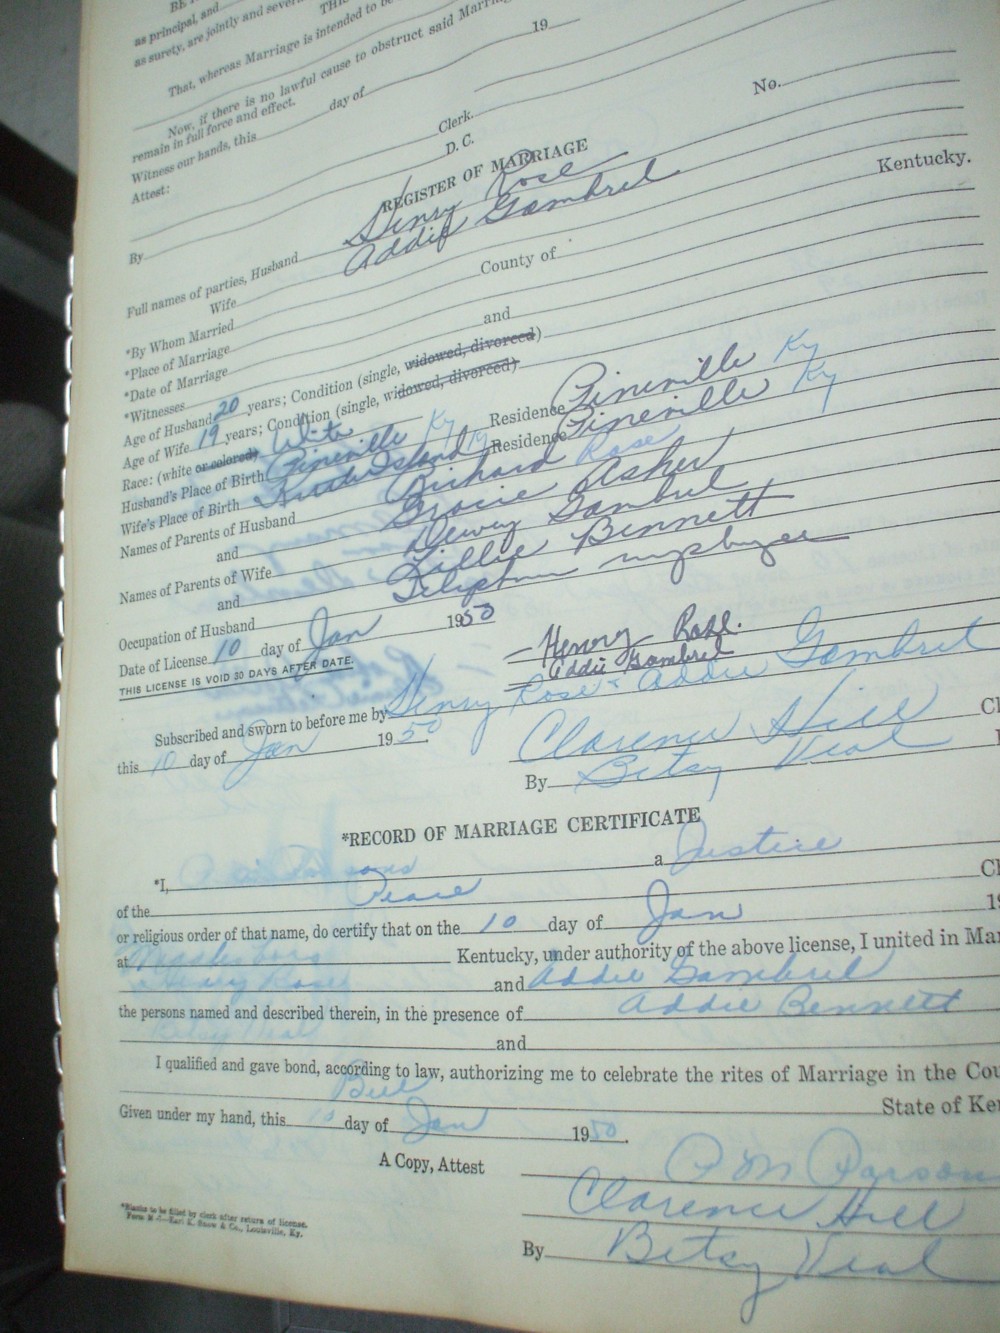 as principal, and
as surety, are jointly and
That, whereas Marriage is intended to be
Now, if there is no lawful cause to obstruct said
remain in full force and effect.
Witness our hands, this day of 19
Attest:
Clerk.
By D. C.
REGISTER OF MARRIAGE No.
Full names of parties, Husband Henry Rose
Wife Addie Gambrel
*By Whom Married
*Place of Marriage County of Kentucky.
*Date of Marriage
*Witnesses and
Age of Husband 20 years; Condition (single, widowed, divorced)
Age of Wife 19 years; Condition (single, widowed, divorced)
Race: (white or colored) White Residence Pineville Ky
Husband's Place of Birth Pineville Ky Residence Pineville Ky
Wife's Place of Birth Island Ky
Names of Parents of Husband Richard Rose
and Gracie Asher
Names of Parents of Wife Dewey Gambrel
and Lillie Bennett
Occupation of Husband
Date of License 10 day of Jan 1950
THIS LICENSE IS VOID 30 DAYS AFTER DATE.
Henry Rose.
Addie Gambrel
Subscribed and sworn to before me by Henry Rose & Addie Gambrel
this 10 day of Jan 1950. Clarence Hill Cl
By Betsy Veal
*RECORD OF MARRIAGE CERTIFICATE
*I, a Justice
of the Peace Cl
or religious order of that name, do certify that on the 10 day of Jan 19
at Kentucky, under authority of the above license, I united in Mar
Henry Rose and Addie Gambrel
the persons named and described therein, in the presence of Addie Bennett
Betsy Veal and
I qualified and gave bond, according to law, authorizing me to celebrate the rites of Marriage in the Cou
Bell State of Ken
Given under my hand, this 10 day of Jan 1950.
P M Parsons
A Copy, Attest
Clarence Hill
By Betsy Veal
*Blanks to be filled by clerk after return of license.